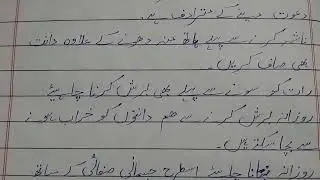 دعوت دینے کے مترادف ہے۔
ناشتہ کرنے سے پہلے ہاتھ منہ دھونے کے علاوہ دانت
بھی صاف کریں۔
رات کو سونے سے پہلے بھی برش کرنا چاہیئے
روزانہ برش کرنے سے ہم دانتوں کو خراب ہونے
سے بچا سکتے ہیں۔
روزانہ نہانا چاہیئے اسطرح جسمانی صفائی کے ساتھ